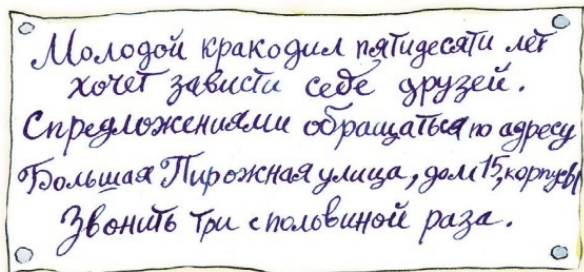 Молодой кракодил пятидесяти лет
хочет зависти себе друзей.
Спредложениями обращаться по адресу
Большая Пирожная улица, дом 15, корпус ы
Звонить три с половиной раза.